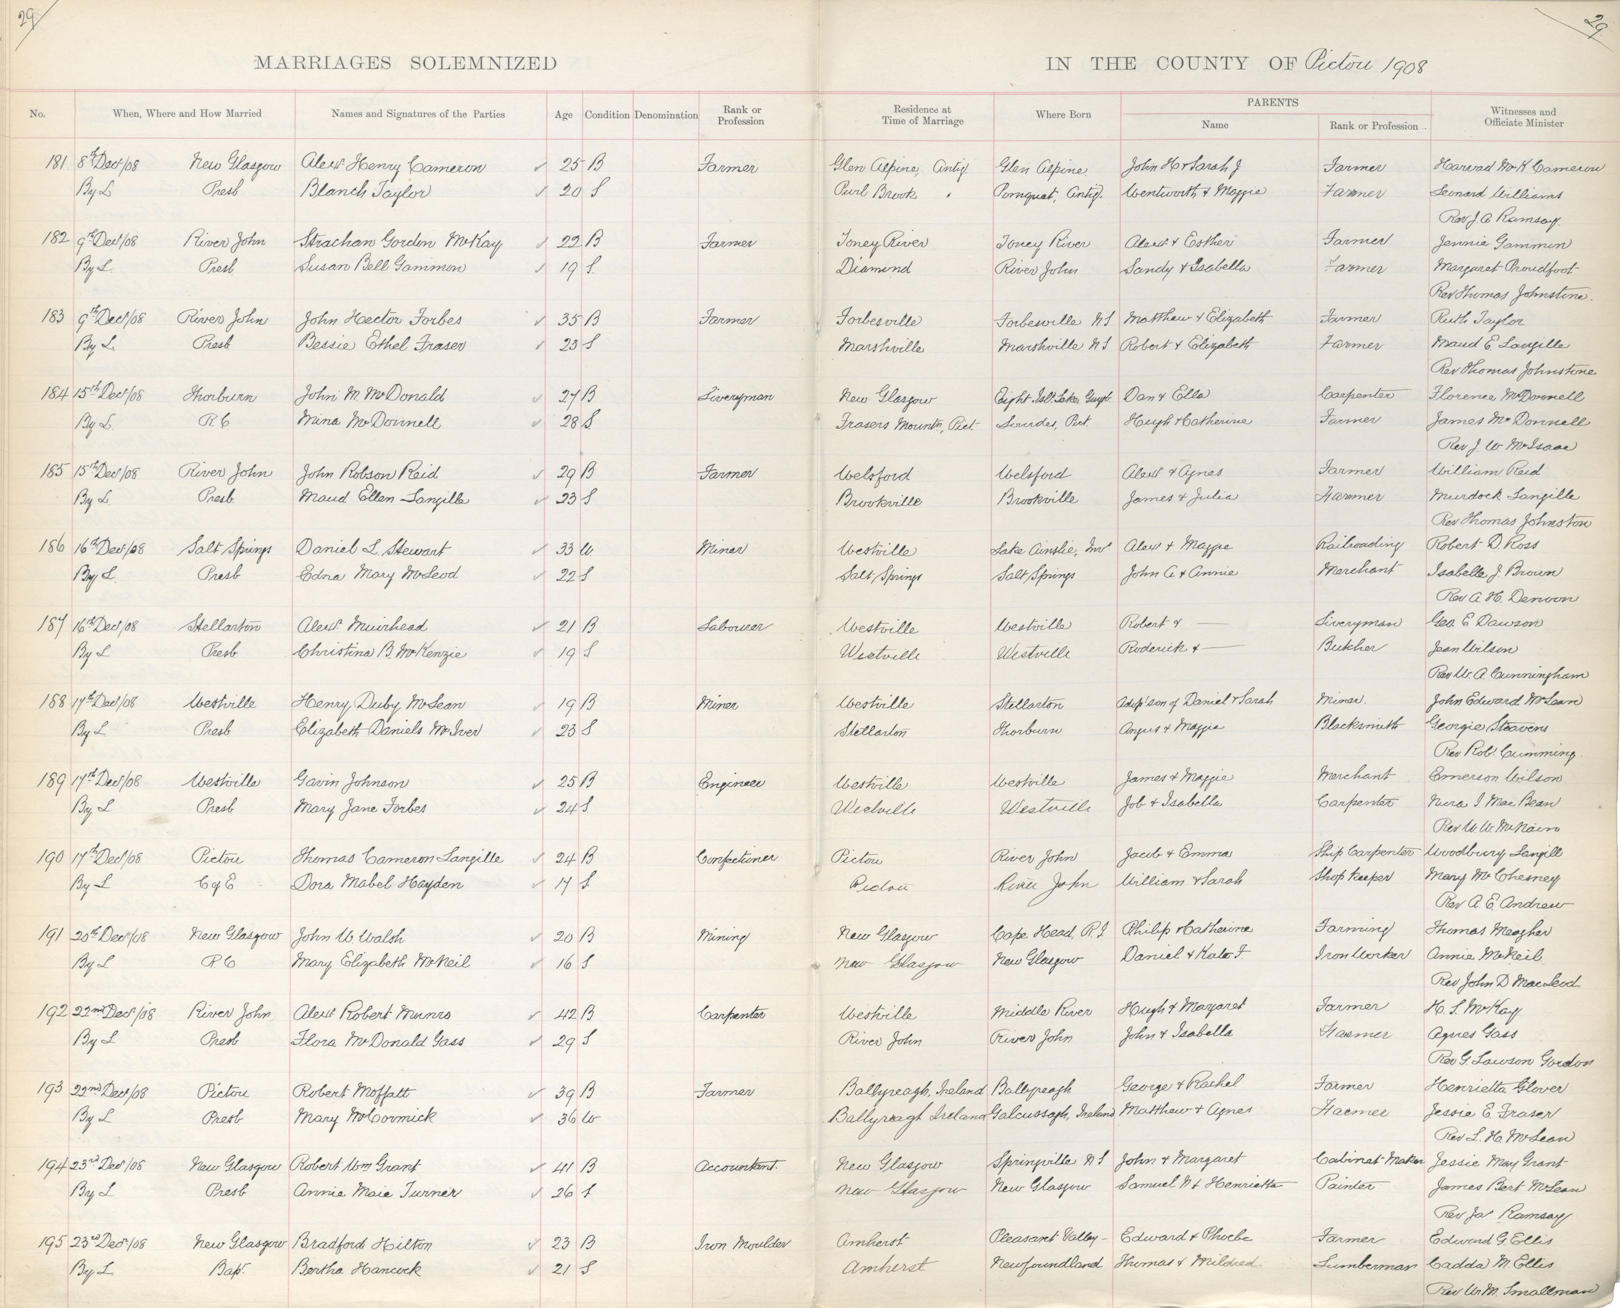 29
29
MARRIAGES SOLEMNIZED IN THE COUNTY OF Pictou 1908
No. When, Where and How Married Names and Signatures of the Parties Age Condition Denomination Rank or Profession Residence at Time of Marriage Where Born PARENTS Name Rank or Profession Witnesses and Officiate Minister
181 8th Dec/08 New Glasgow Alexr Henry Cameron ✓ 25 B Farmer Glen Alpine, Antig. Glen Alpine John H & Sarah J Farmer Harvad McK Cameron
By L Presb Blanch Taylor ✓ 20 S Purl Brook " Pomquet, Antig. Wentworth & Maggie Farmer Leonard Williams
Rev J. A. Ramsay.
182 9th Dec/08 River John Strachan Gordon McKay ✓ 22 B Farmer Toney River Toney River Alexr & Esther Farmer Jennie Gammon
By L. Presb Susan Bell Gammon ✓ 19 S. Diamond River John Sandy & Isabella Farmer Margaret Proudfoot
Rev Thomas Johnstone.
183 9th Dec/08 River John John Hector Forbes ✓ 35 B Farmer Forbesville Forbesville NS Matthew & Elizabeth Farmer Ruth Taylor
By L. Presb Bessie Ethel Fraser ✓ 23 S Marshville Marshville NS Robert & Elizabeth Farmer Maud E Langille
Rev Thomas Johnstone
184 15th Dec/08 Thorburn John M McDonald ✓ 27 B Liveryman New Glasgow Eight Isl. Lake, Guys. Dan & Ella Carpenter Florence McDonnell
By L. R. C Mina McDonnell ✓ 28 S Frasers Mountn, Pict Lourdes, Pict. Hugh & Catherine Farmer James McDonnell
Rev J. W. McIsaac
185 15th Dec/08 River John John Robson Reid ✓ 29 B Farmer Welsford Welsford Alexr & Agnes Farmer William Reid
By L. Presb. Maud Ellen Langille ✓ 23 S Brookville Brookville James & Julia Farmer Murdock Langille
Rev Thomas Johnston
186 16th Dec/08 Salt Springs Daniel L Stewart ✓ 33 W Miner Westville Lake Ainslie, Inv Alex & Maggie Railroading Robert D. Ross
By L. Presb Edna Mary McLeod ✓ 22 S Salt Springs Salt Springs John A & Annie Merchant Isabelle J Brown
Rev A. H. Denoon
187 16th Dec/08 Stellarton Alexr Muirhead ✓ 21 B Labourer Westville Westville Robert & — Liveryman Geo. E Dawson
By L Presb Christina B. McKenzie ✓ 19 S Westville Westville Roderick & — Butcher Jean Wilson
Rev W. A Cunningham
188 17th Dec/08 Westville Henry Duby McLean ✓ 19 B Miner Westville Stellarton Adop' son of Daniel & Sarah Miner. John Edward McLean
By L. Presb Elizabeth Daniels McIver ✓ 23 S Stellarton Thorburn Angus & Maggie Blacksmith Georgie Steavens
Rev Robt Cumming.
189 17th Dec/08 Westville Gavin Johnson ✓ 25 B Engineer Westville Westville James & Maggie Merchant Emerson Wilson
By L Presb Mary Jane Forbes ✓ 24 S. Westville Westville Job & Isabella Carpenter Nina I MacBean
Rev W. W. McNairn
190 17th Dec/08 Pictou Thomas Cameron Langille ✓ 24 B Confectioner Pictou River John Jacob & Emma Ship Carpenter Woodbury Langill
By L C of E Dora Mabel Hayden ✓ 17 S Pictou River John William & Sarah Shop Keeper Mary McChesney
Rev A. E. Andrew
191 20th Dec/08 New Glasgow John W. Walsh ✓ 20 B Mining New Glasgow Cape Head, P.I Philip & Catherine Farming Thomas Meagher
By L R. C Mary Elizabeth McNeil ✓ 16 S New Glasgow New Glasgow Daniel & Kate F Iron Worker Annie McNeil
Rev John D MacLeod
192 22nd Dec/08 River John Alexr Robert Munro ✓ 42 B Carpenter Westville Middle River Hugh & Margaret Farmer H. S. McKay
By L Presb Flora McDonald Gass ✓ 29 S River John River John John & Isabella Farmer Agnes Gass
Rev G. Lawson Gordon
193 22nd Dec/08 Pictou Robert Moffatt ✓ 39 B Farmer Ballyreagh, Ireland Ballyreagh George & Rachel Farmer Henrietta Glover
By L Presb Mary McCormick ✓ 36 W Ballyreagh Ireland Ireland Matthew & Agnes Farmer Jessie E. Fraser
Rev L. H. McLean
194 23rd Dec/08 New Glasgow Robert Wm Grant ✓ 41 B Accountant. New Glasgow Springville NS John & Margaret Cabinet Maker Jessie May Grant
By L Presb Annie Maie Turner ✓ 26 S New Glasgow New Glasgow Samuel N & Henrietta Painter James Bert McLean
Rev Jas Ramsay
195 23rd Dec/08 New Glasgow Bradford Hilton ✓ 23 B Iron Moulder Amherst Pleasant Valley- Edward & Phoebe Farmer Edward G. Ellis
By L Bapt. Bertha Hancock ✓ 21 S Amherst Newfoundland Thomas & Mildred Lumberman Cadda M. Ellis
Rev W. M. Smallman